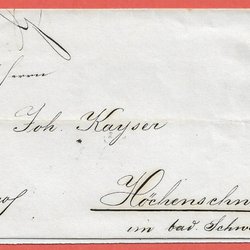 Herrn
Joh. Kayser
Höchenschw
im bad. Schw